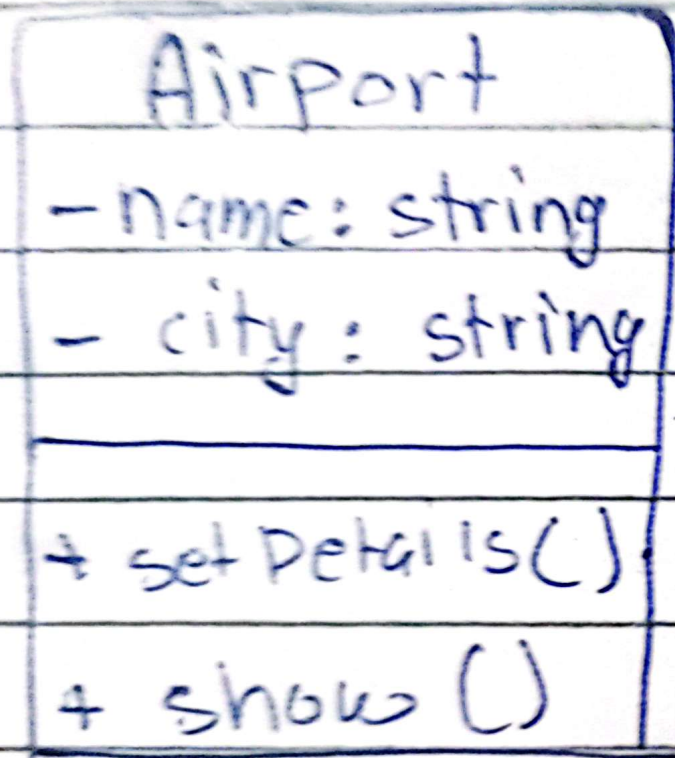 Airport
- name: string
- city: string
+ setDetails()
+ show()